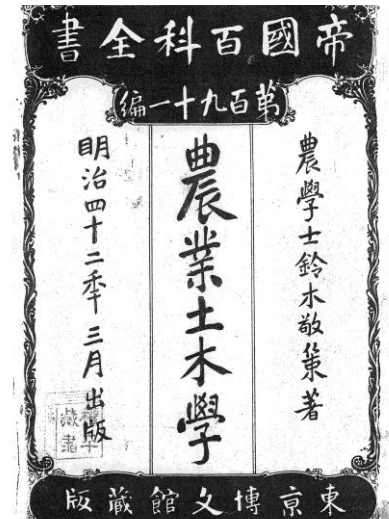 帝國百科全書
第百九十一編
農學士鈴木敬策著
農業土木學
明治四十二年三月出版
東京博文館藏版